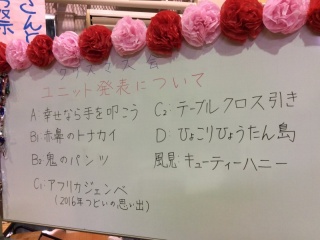 ユニット発表について
A: 幸せなら手を叩こう
B1: 赤鼻のトナカイ
B2: 鬼のパンツ
C1: アフリカジェンベ
(2016年つどいの思い出)
C2: テーブルクロス引き
D: ひょこりひょうたん島
風見: キューティーハニー